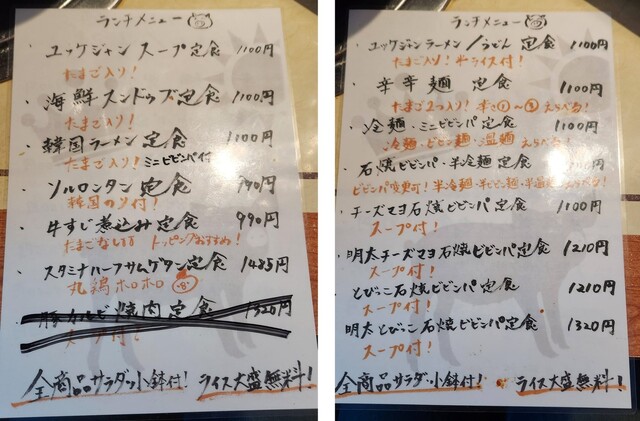 ランチメニュー
・ユッケジャンスープ定食 1100円
たまご入り!
・海鮮スンドゥブ定食 1100円
たまご入り!
・韓国ラーメン定食 1100円
たまご入り! ミニビビンバ付
・ソルロンタン定食 990円
韓国のり付!
・牛すじ煮込み定食 990円
たまごなし! トッピングおすすめ!
・スタミナハーフサムゲタン定食 1485円
丸鶏ホロホロ
・豚カルビ焼肉定食 1320円
スープ付!
全商品サラダ・小鉢付! ライス大盛無料!
ランチメニュー
・ユッケジャンラーメン/うどん定食 1100円
たまご入り! 半ライス付!
・辛辛麺定食 1100円
たまご2つ入り! 辛さ①〜③えらべる!
・冷麺・ミニビビンバ定食 1100円
冷麺・ビビン麺・温麺 えらべる!
・石焼ビビンバ・半冷麺定食
ビビンバ変更可! 半冷麺・半ビビン麺・半温麺 えらべる!
・チーズマヨ石焼ビビンバ定食 1100円
スープ付!
・明太チーズマヨ石焼ビビンバ定食 1210円
スープ付!
・とびこ石焼ビビンバ定食 1210円
スープ付!
・明太とびこ石焼ビビンバ定食 1320円
スープ付!
全商品サラダ・小鉢付! ライス大盛無料!